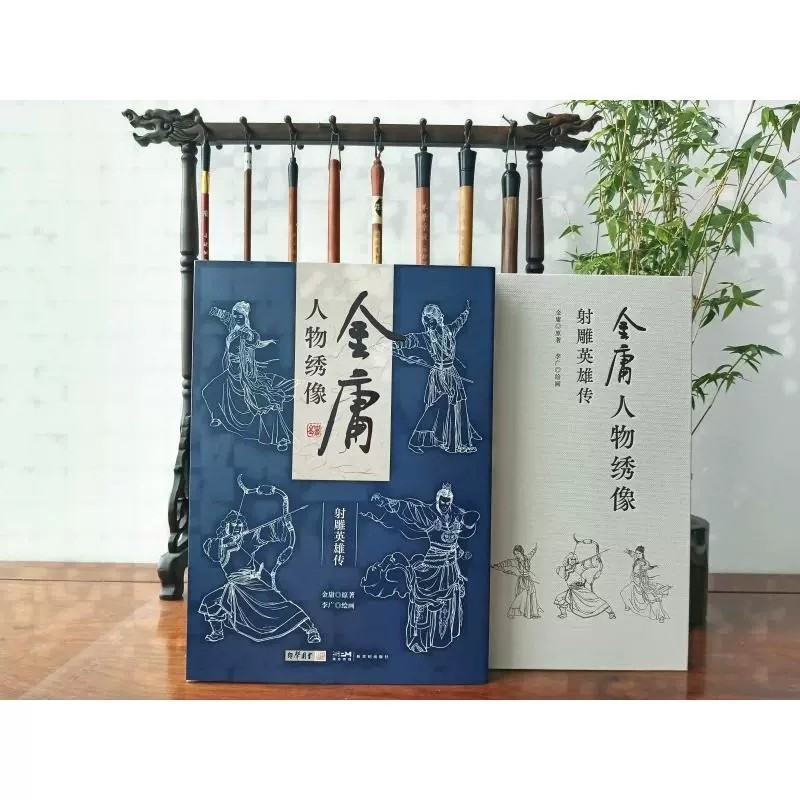 金庸
人物绣像
射雕英雄传
金庸◎原著
李广◎绘画
新世纪出版社
金庸人物绣像
射雕英雄传
金庸◎原著 李广◎绘画